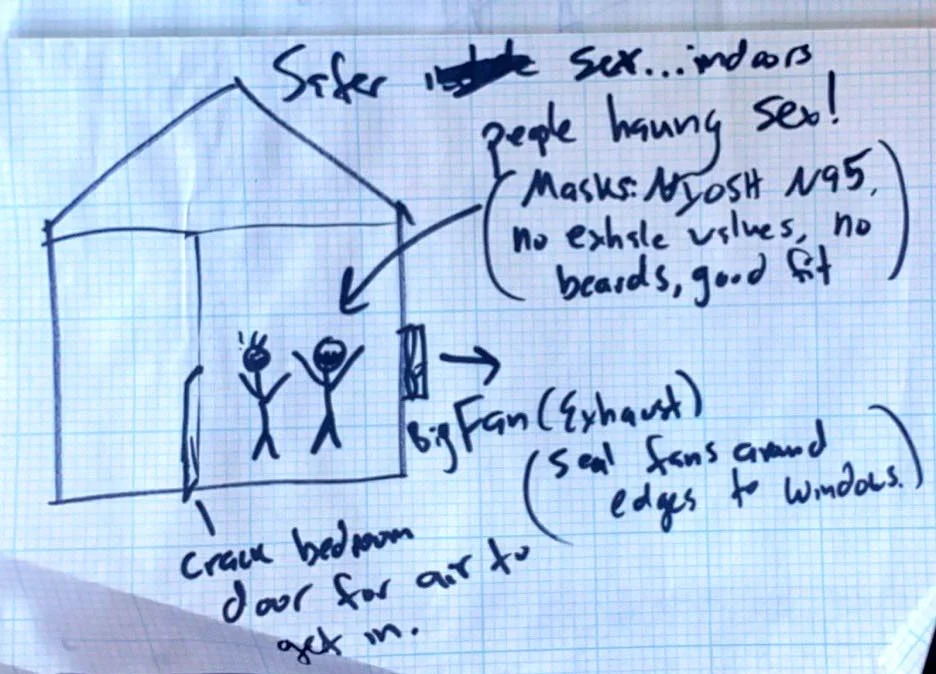 Safer sex...indoors
people having sex!
(Masks: NIOSH N95,
no exhale valves, no
beards, good fit)
Big Fan (Exhaust)
(Seal fans around
edges to windows.)
crack bedroom
door for air to
get in.